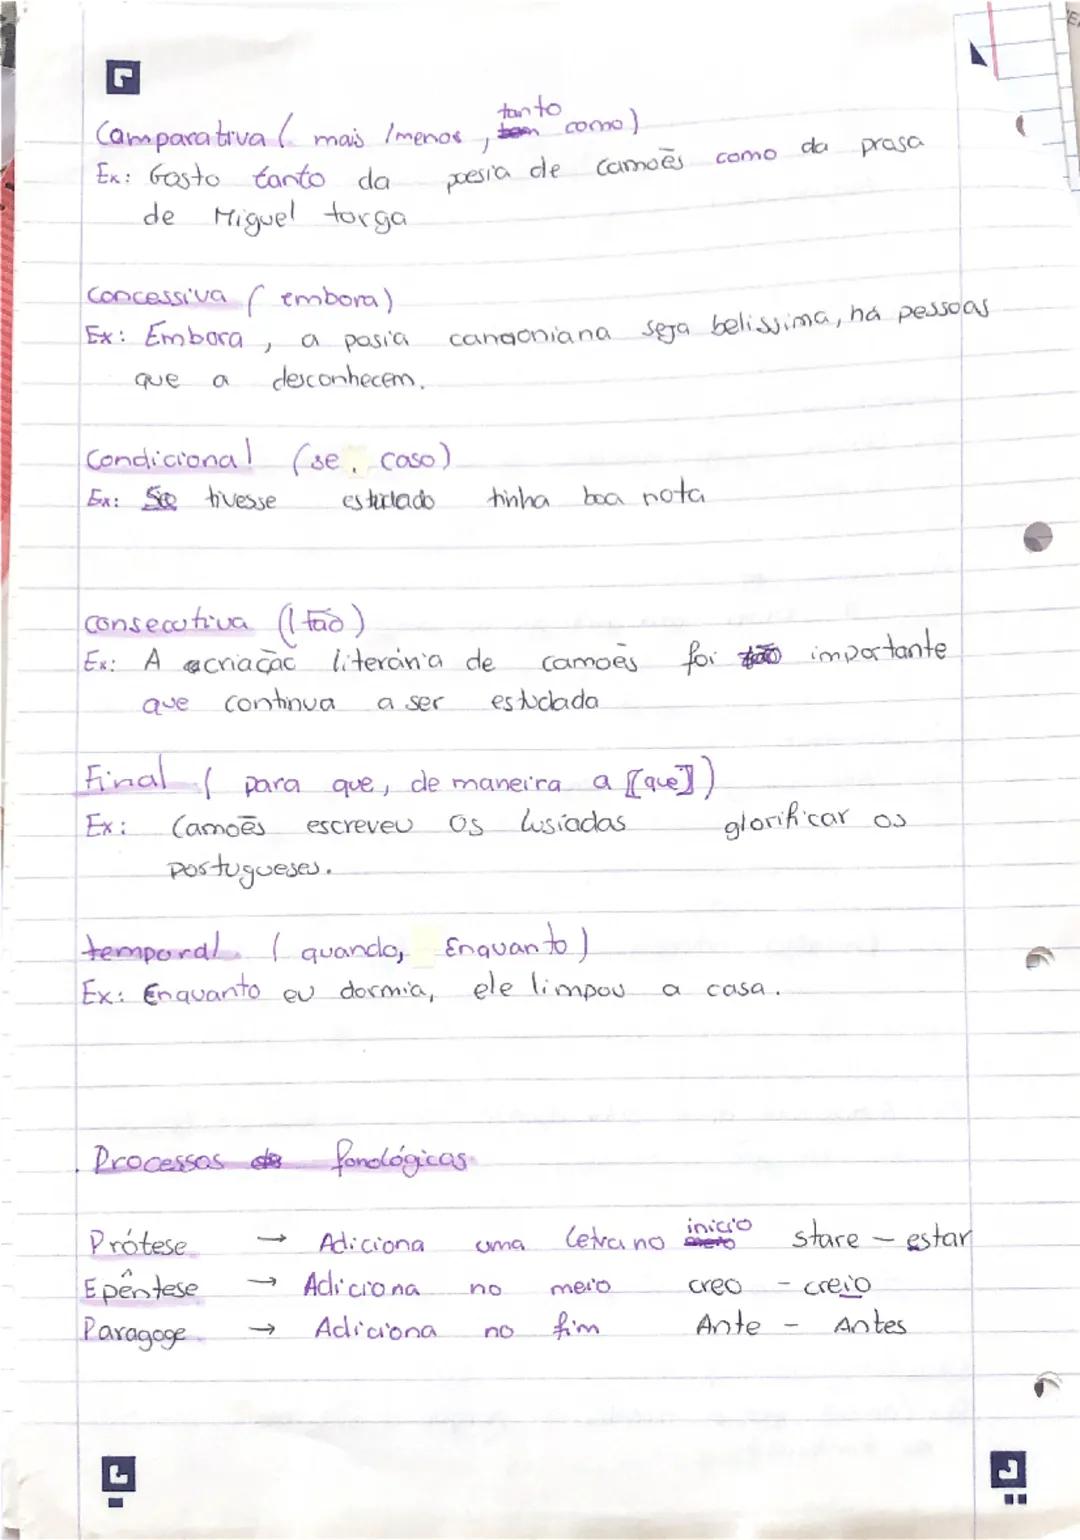 Comparativa ( mais /menos, tanto como)
Ex: Gosto tanto da poesia de Camoẽs como da prosa
de Miguel torga
Concessiva ( embora)
Ex: Embora, a posia camoniana seja belissima, há pessoas
que a desconhecem.
Condicional (se, caso)
Ex: Se tivesse estudado tinha boa nota
consecutiva (tão)
Ex: A criação literária de camoẽs foi tão importante
que continua a ser estudada
Final ( para que, de maneira a [[que]])
Ex: Camoẽs escreveu Os lusíadas glorificar os
portugueses.
temporal. ( quando, Enquanto)
Ex: Enquanto eu dormia, ele limpou a casa.
Processos fonológicos
Prótese → Adiciona uma letra no inicio stare - estar
Epêntese → Adiciona no meio creo - creio
Paragoge → Adiciona no fim Ante - Antes